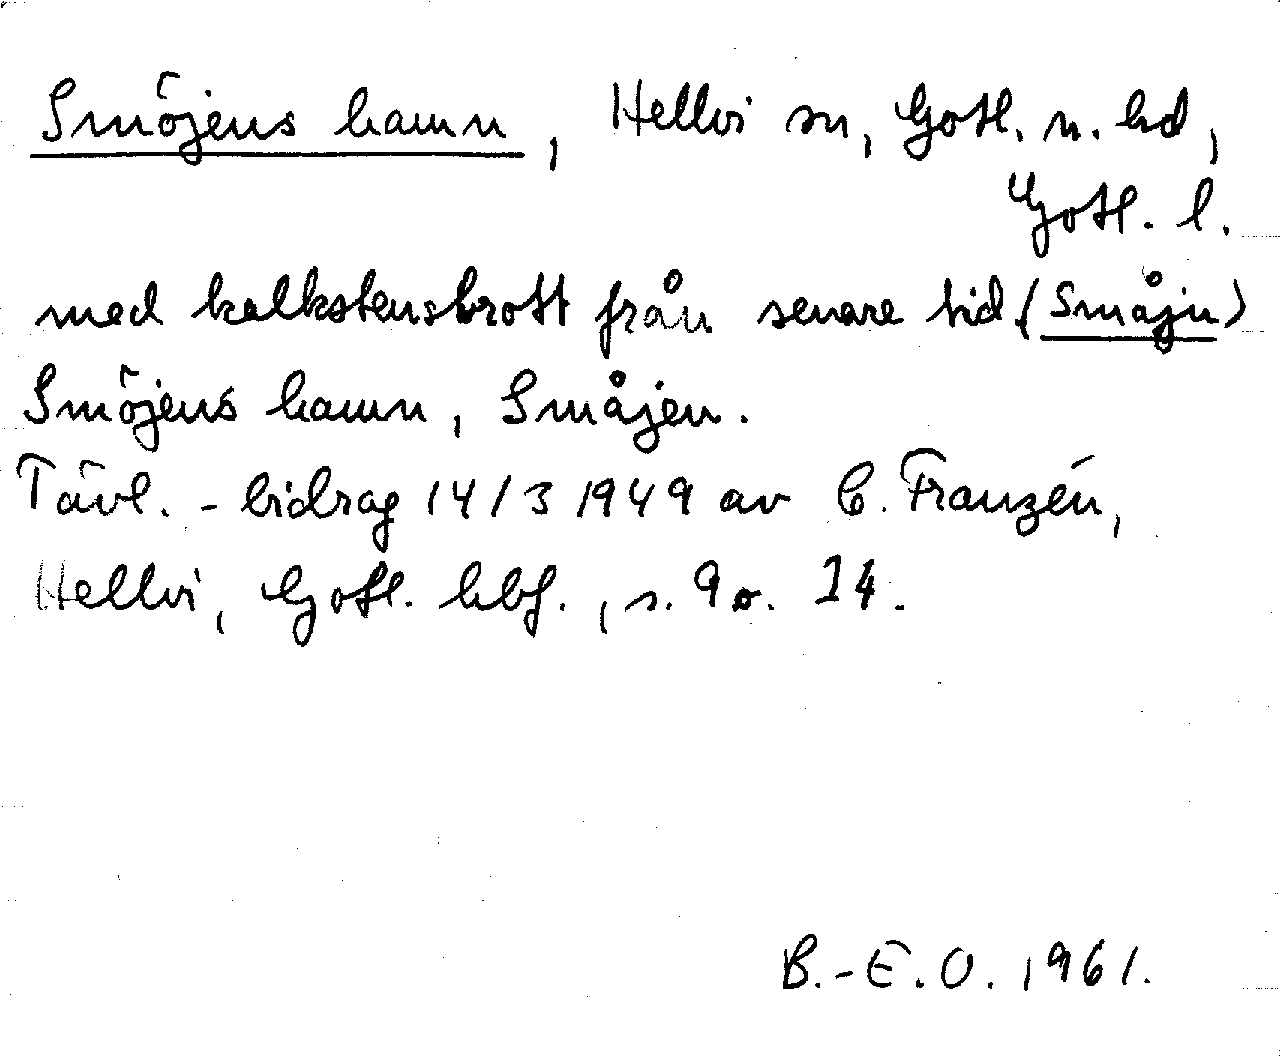 Smöjens hamn, Hellvi sn, Gotl. n. hd,
Gotl. l.
med kalkstensbrott från senare tid (Småjn)
Smöjens hamn, Småjen.
Tävl. - bidrag 14/3 1949 av C. Franzén,
Hellvi, Gotl. hbf., s. 9 o. 14.
B.-E.O. 1961.